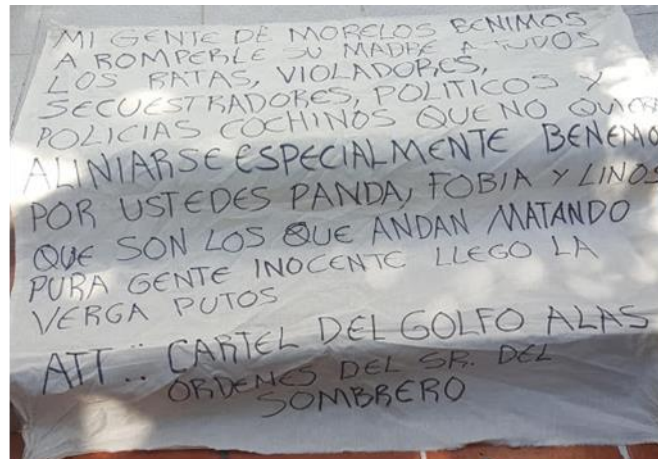 MI GENTE DE MORELOS BENIMOS
A ROMPERLE SU MADRE A TODOS
LOS RATAS, VIOLADORES,
SECUESTRADORES, POLITICOS Y
POLICIAS COCHINOS QUE NO QUIEN
ALINIARSE ESPECIALMENTE BENEMO
POR USTEDES PANDA, FOBIA Y LINOS
QUE SON LOS QUE ANDAN MATANDO
PURA GENTE INOCENTE LLEGO LA
VERGA PUTOS
ATT.: CARTEL DEL GOLFO ALAS
ORDENES DEL SR. DEL
SOMBRERO